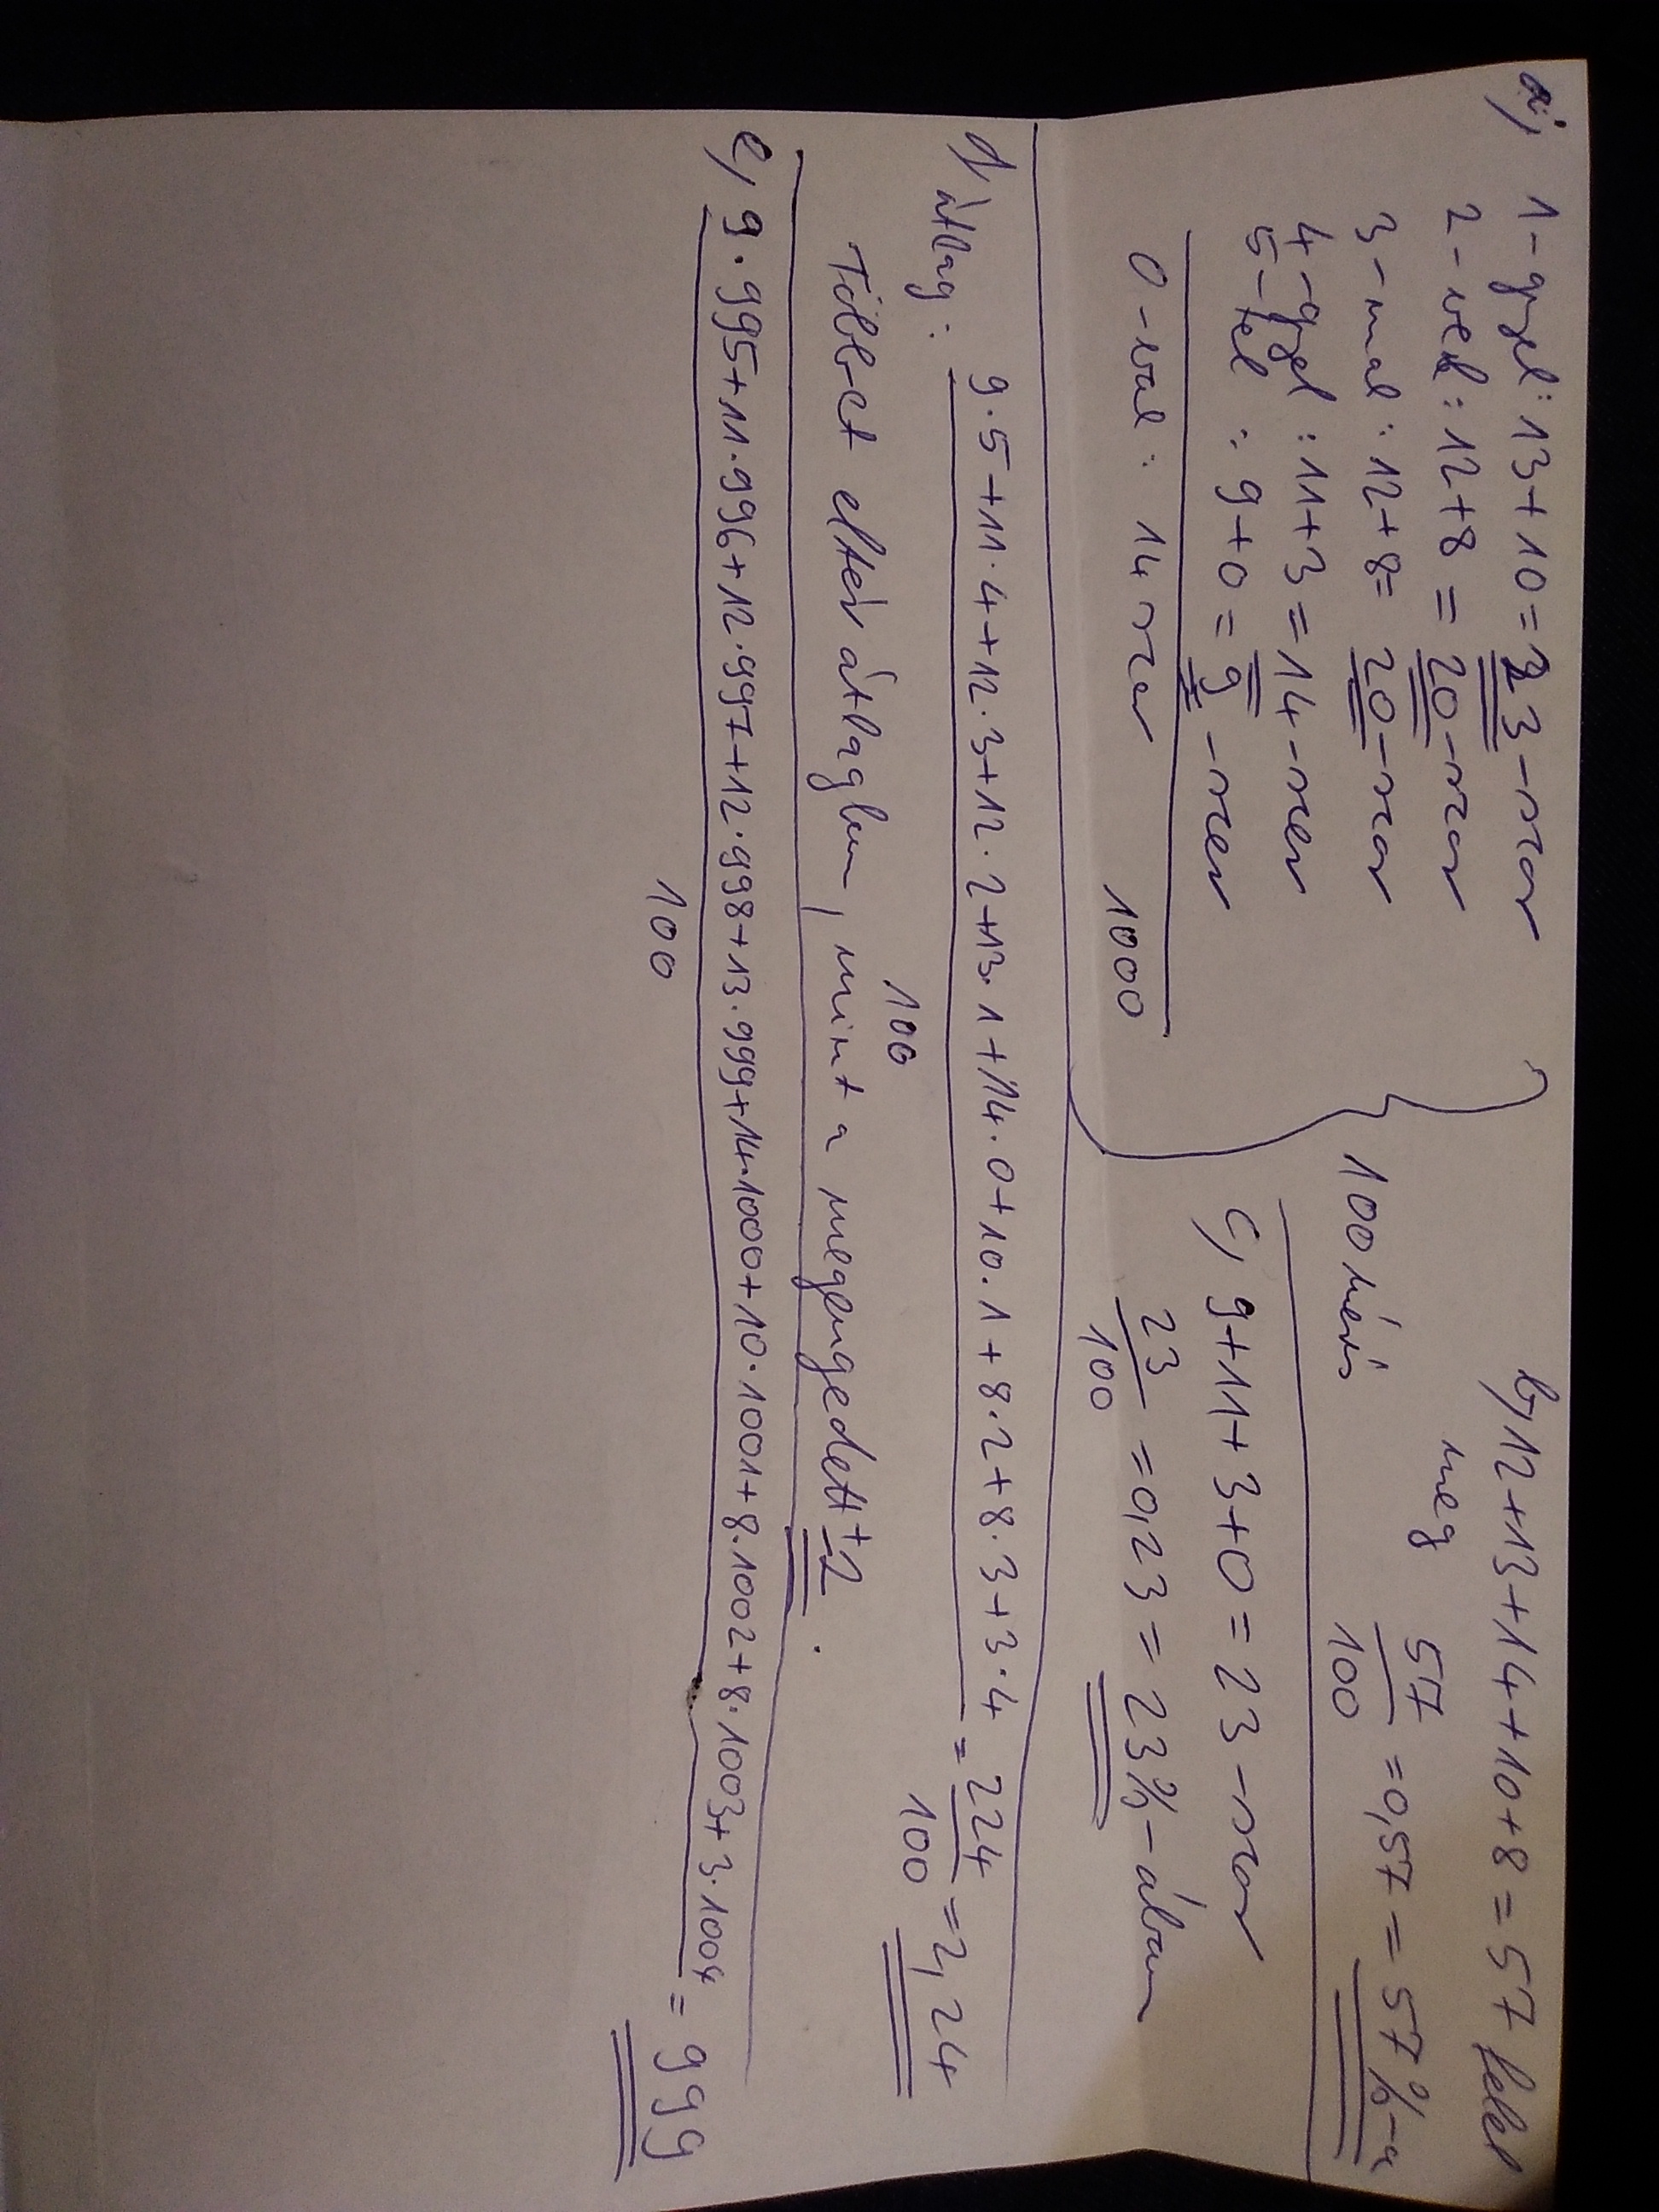 a, 1-gyel: 13+10=23-szor
2-vel: 12+8=20-szor
3-mal: 12+8=20-szor
4-gyel: 11+3=14-szer
5-tel: 9+0=9-szer
0-val: 14 szer 1000
100 mérés
b, 12+13+14+10+8=57 felel
meg 57/100 = 0,57 = 57%-a
c, 9+11+3+0=23-szor
23/100 = 0,23 = 23%-ában
d, átlag: 9·5+11·4+12·3+12·2+13·1+14·0+10·1+8·2+8·3+3·4 / 100 = 224/100 = 2,24
Többet eltér átlagban, mint a megengedett ±2.
e, 9·995+11·996+12·997+12·998+13·999+14·1000+10·1001+8·1002+8·1003+3·1004 / 100 = 999